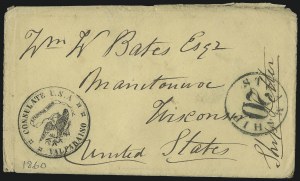 Wm W Bates Esqr
Manitowoc
Wisconsin
United States
Ship Letter
CONSULATE U.S.A.
VALPARAISO
20
1860